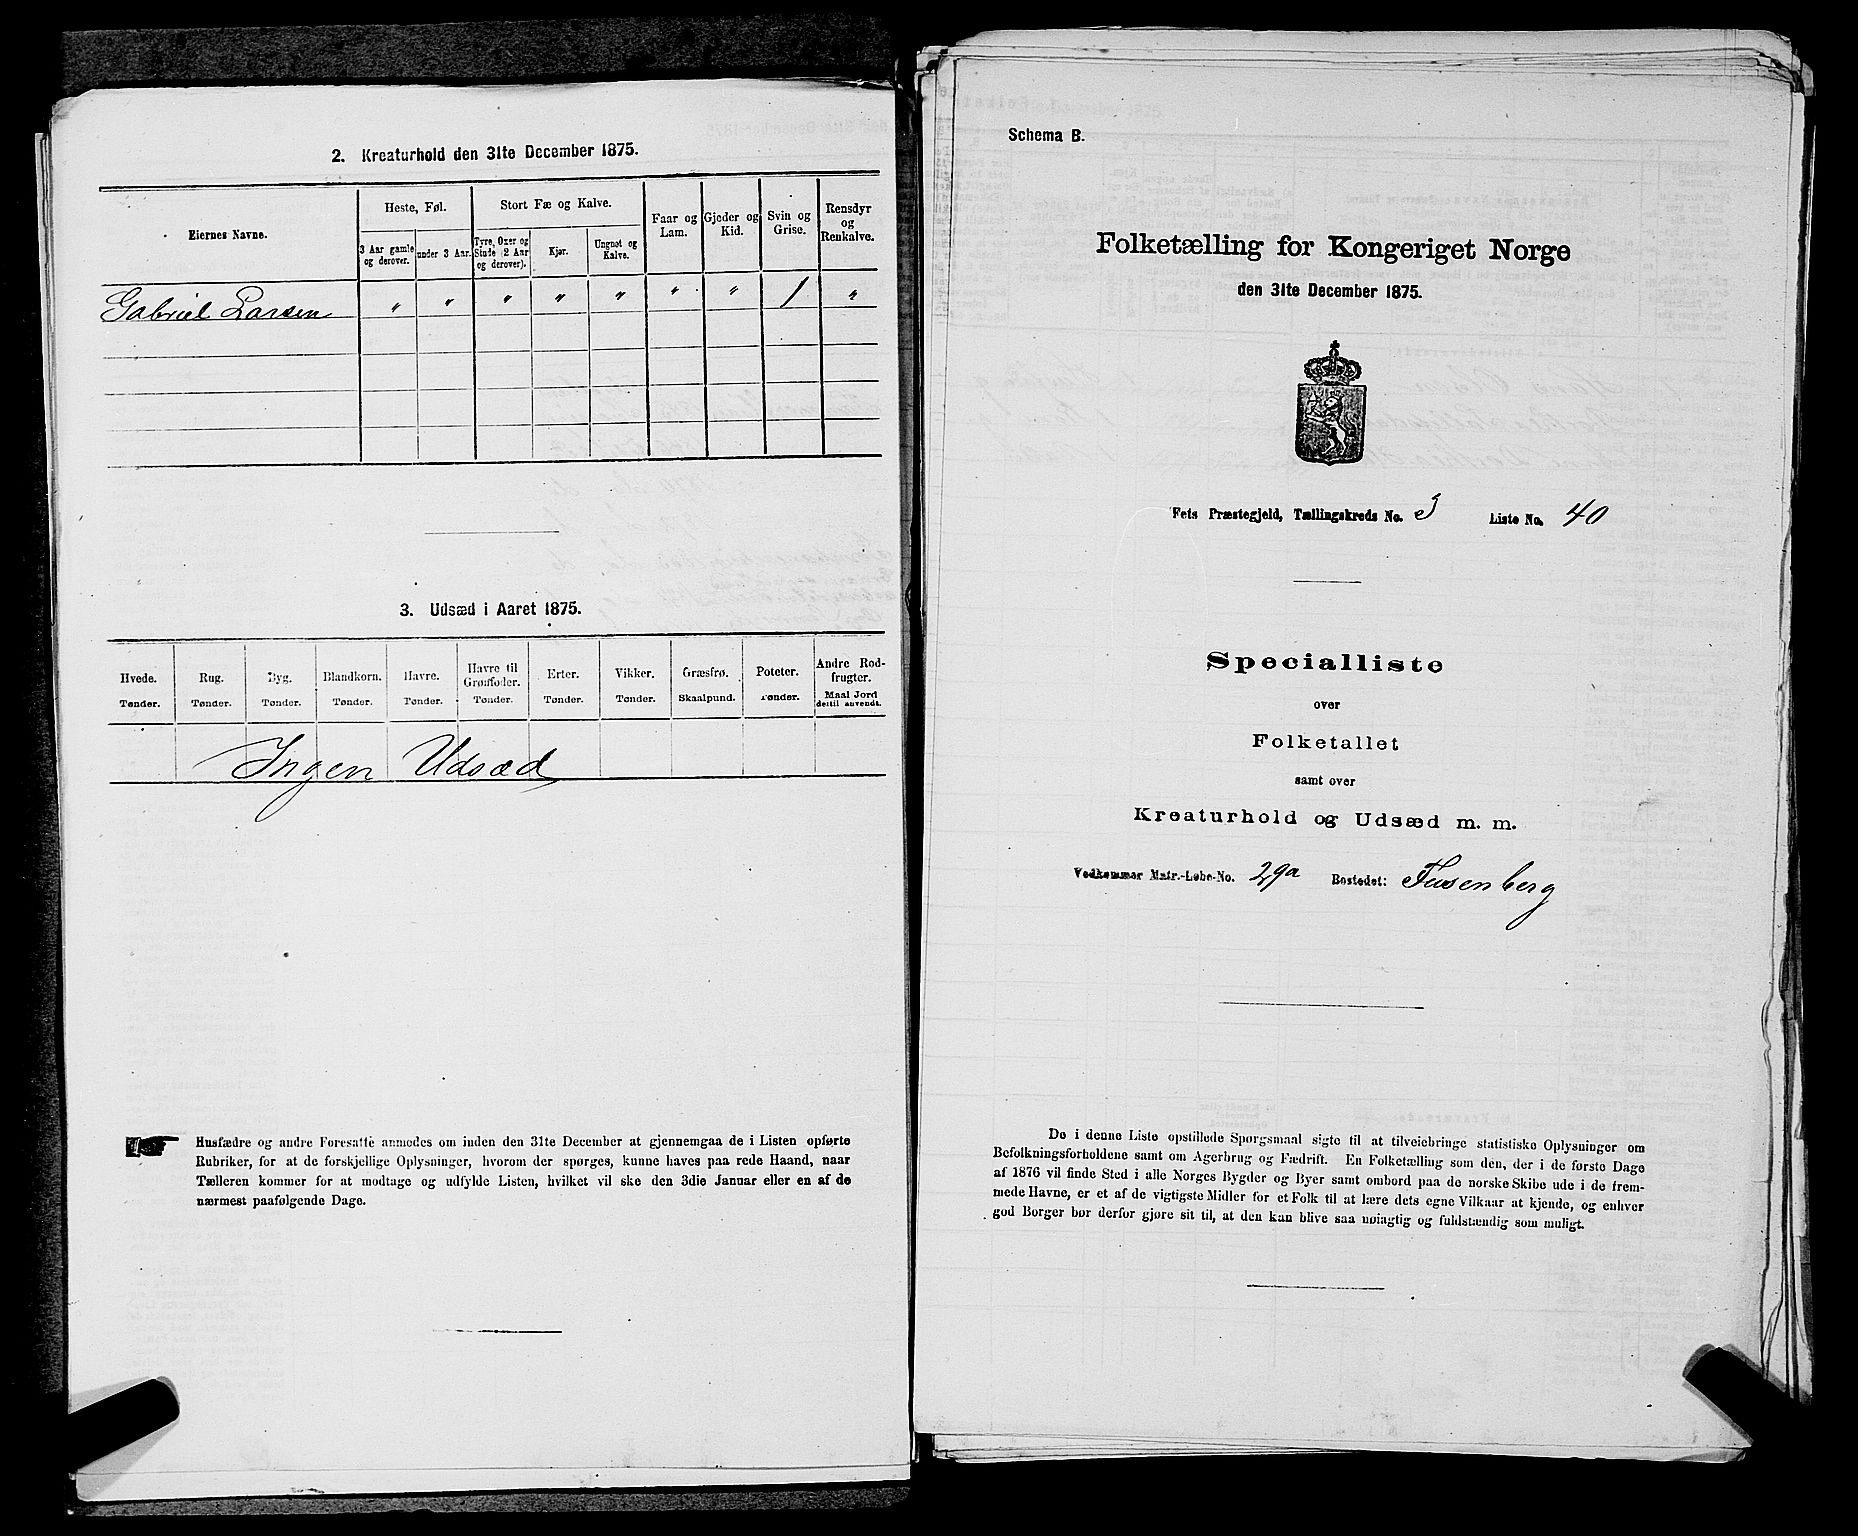 2. Kreaturhold den 31te December 1875.
Eiernes Navne.
Heste, Føl.
Stort Fæ og Kalve.
Faar og Lam.
Gjeder og Kid.
Svin og Grise.
Rensdyr og Renkalve.
3 Aar gamle og derover.
under 3 Aar.
Tyre, Oxer og Stude (2 Aar og derover).
Kjør.
Ungnøt og Kalve.
Gabriel Larsen " " " " " " " 1 "
3. Udsæd i Aaret 1875.
Hvede. Rug. Byg. Blandkorn. Havre. Havre til Grønfoder. Erter. Vikker. Græsfrø. Poteter. Andre Rodfrugter.
Tønder. Tønder. Tønder. Tønder. Tønder. Tønder. Tønder. Tønder. Skaalpund. Tønder. Maal Jord dertil anvendt.
Ingen Udsæd
Husfædre og andre Foresatte anmodes om inden den 31te December at gjennemgaa de i Listen opførte
Rubriker, for at de forskjellige Oplysninger, hvorom der spørges, kunne haves paa rede Haand, naar
Tælleren kommer for at modtage og udfylde Listen, hvilket vil ske den 3die Januar eller en af de
nærmest paafølgende Dage.
Schema B.
Folketælling for Kongeriget Norge
den 31te December 1875.
Fets Præstegjeld, Tællingskreds No. 3 Liste No. 40
Specialliste
over
Folketallet
samt over
Kreaturhold og Udsæd m. m.
Vedkommer Matr.-Løbe-No. 29a Bostedet:
De i denne Liste opstillede Spørgsmaal sigte til at tilveiebringe statistiske Oplysninger om
Befolkningsforholdene samt om Agerbrug og Fædrift. En Folketælling som den, der i de første Dage
af 1876 vil finde Sted i alle Norges Bygder og Byer samt ombord paa de norske Skibe ude i de frem-
mede Havne, er et af de vigtigste Midler for et Folk til at lære dets egne Vilkaar at kjende, og enhver
god Borger bør derfor gjøre sit til, at den kan blive saa nøiagtig og fuldstændig som muligt.